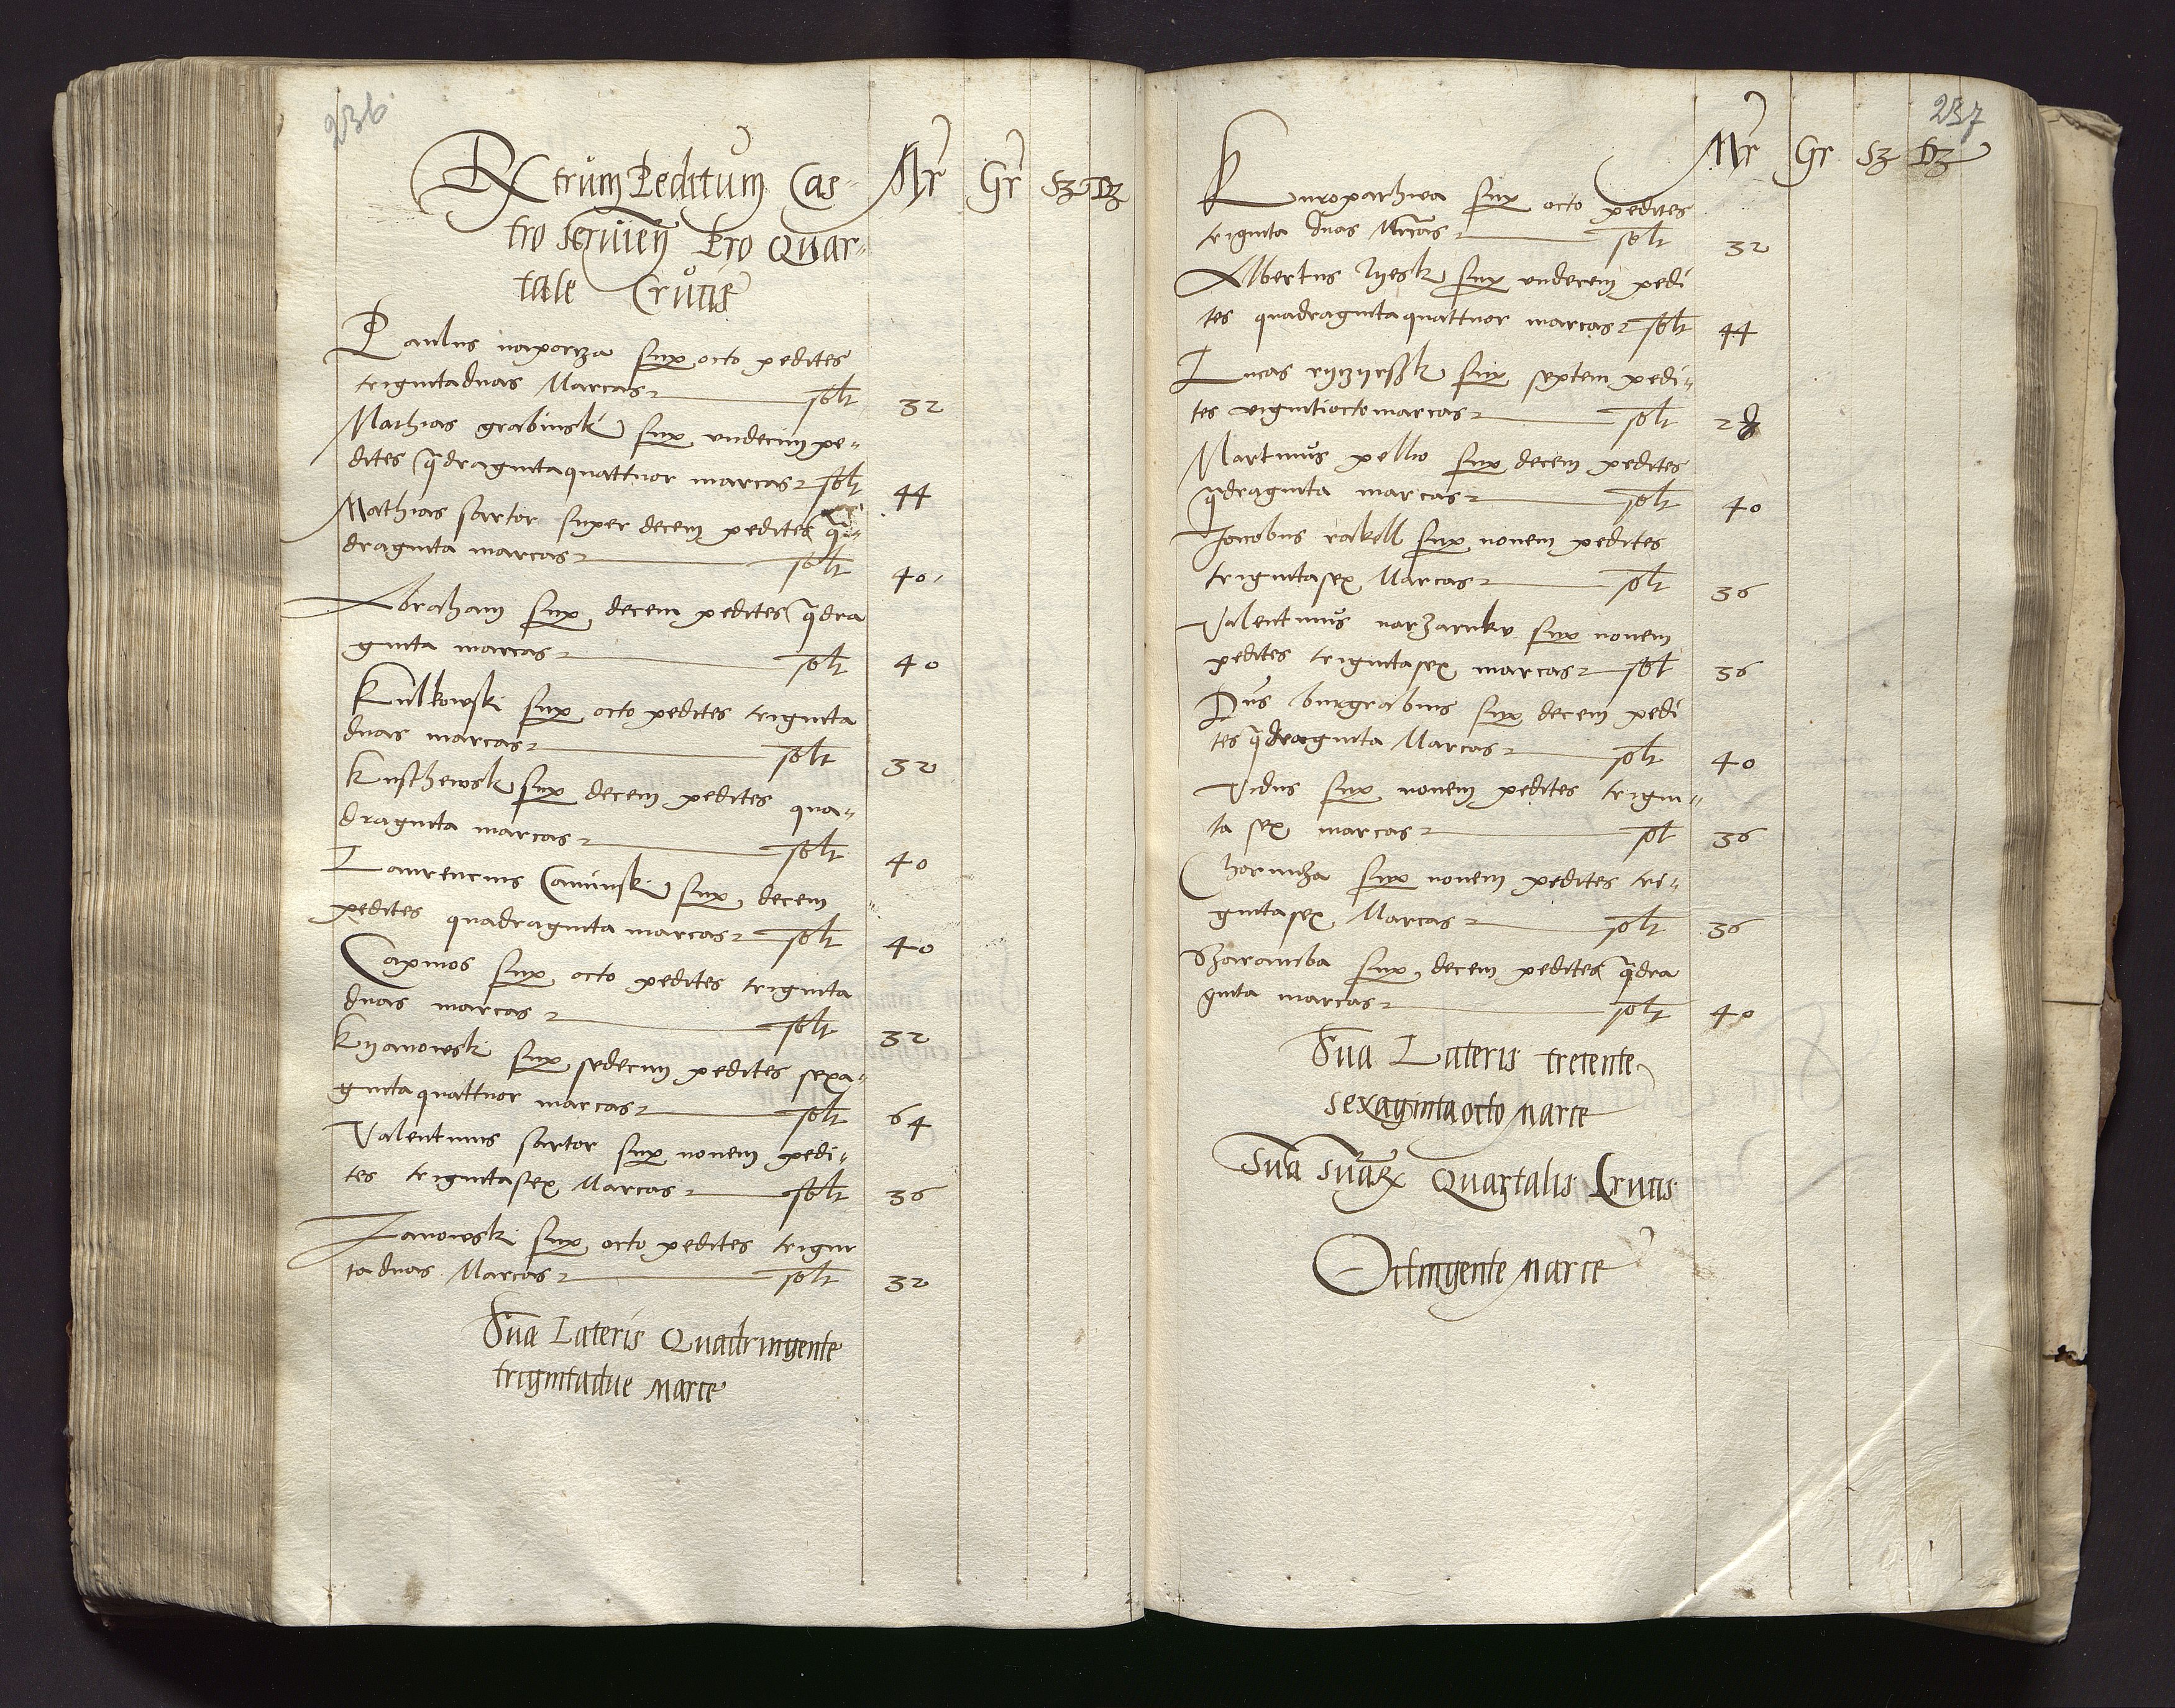 236
Extrum Peditum Cas-
Mr Gr Sz Dz
tro servien Pro Quar-
tale Crucis
Paulus naporza sup octo pedites
trigintaduas Marcas solt 32
Mathias grabinski sup undecim pe-
dites qdragintaquattuor marcas solt 44
Mathias sartor super decem pedites qu-
draginta marcas solt 40
Abraham sup decem pedites qdra
ginta marcas solt 40
Kulkowski sup octo pedites triginta
duas marcas solt 32
Kusthewsk sup decem pedites qua-
draginta marcas solt 40
Laurencius Caminski sup decem
pedites quadraginta marcas solt 40
Capinos sup octo pedites triginta
duas marcas solt 32
Kyanowski sup sedecim pedites sexa-
gintaquattuor marcas solt 64
Valentinus sartor sup novem pedi-
tes trigintasex Marcas solt 36
Janowski sup octo pedites trigin
taduas Marcas solt 32
Sua Lateris Quadringente
trigintadue Marce
237
Mr Gr Sz Dz
Kuropathwa sup octo pedites
triginta duas Mrcas solt 32
Albertus Zyesk sup undecem pedi
tes quadragintaquattuor marcas solt 44
Lucas sup septem pedi-
tes vigintiocto marcas solt 28
Martinus pellio sup decem pedites
qdraginta marcas solt 40
Jacobus rakell sup novem pedites
trigintasex Marcas solt 36
Valentinus sup novem
pedites trigintasex marcas solt 36
Dns burgrabius sup decem pedi
tes qdraginta Marcas solt 40
Vidus sup novem pedites trigin-
ta sex marcas sol 36
Charinza sup novem pedites tri-
gintasex Marcas solt 36
Sharamba sup decem pedites qdra
ginta marcas solt 40
Sua Lateris trecente
sexagintaocto Marce
Sua Suaru Quartalis Crucis
Octingente Marce